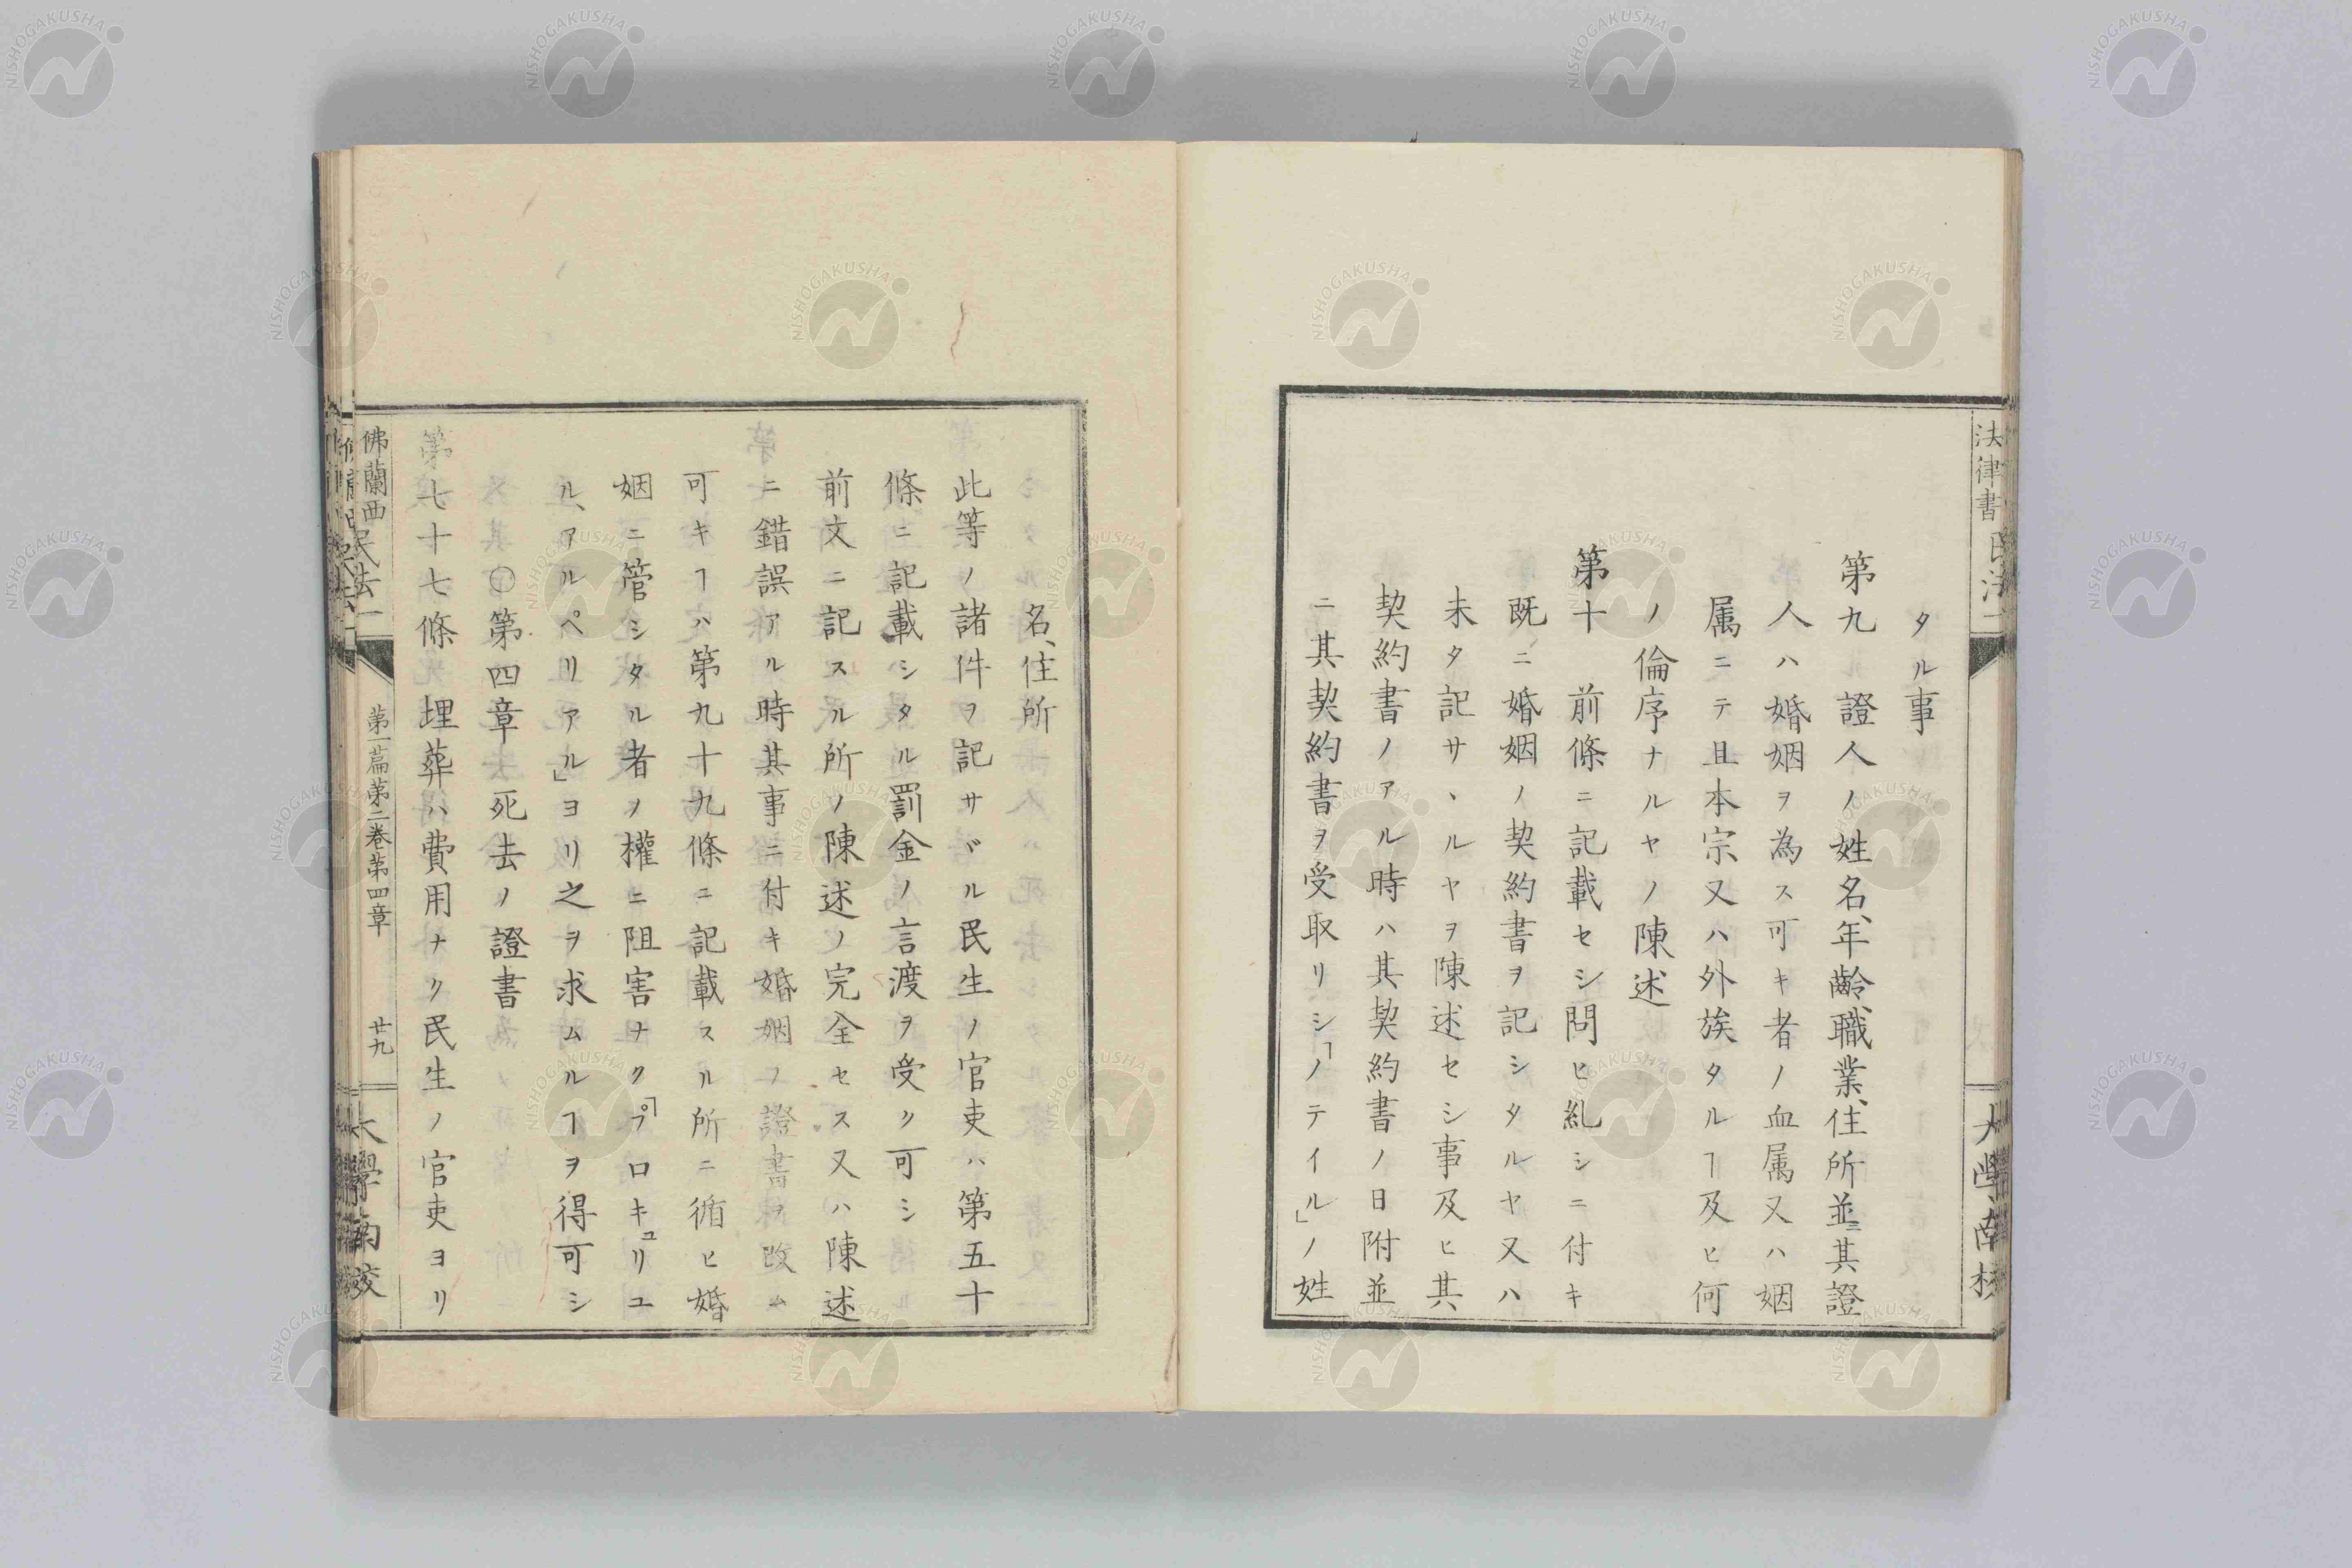 法律書 民法一
大學南校
タル事
第九 證人ノ姓名、年齡、職業、住所並ニ其證
人ハ婚姻ヲ為ス可キ者ノ血属又ハ姻
属ニテ且本宗又ハ外族タルヿ及ヒ何
ノ倫序ナルヤノ陳述
第十 前條ニ記載セシ問ヒ糺シニ付キ
既ニ婚姻ノ契約書ヲ記シタルヤ又ハ
未タ記サヽルヤヲ陳述セシ事及ヒ其
契約書ノアル時ハ其契約書ノ日附並
ニ其契約書ヲ受取リシ「ノテイル」ノ姓
名、住所
此等ノ諸件ヲ記サヾル民生ノ官吏ハ第五十
條ニ記載シタル罰金ノ言渡ヲ受ク可シ
前文ニ記スル所ノ陳述ノ完全セス又ハ陳述
ニ錯誤アル時其事ニ付キ婚姻ノ證書ヲ改ム
可キヿハ第九十九條ニ記載スル所ニ循ヒ婚
姻ニ管シタル者ノ權ニ阻害ナク「プロキュリユ
ル、アルペリアル」ヨリ之ヲ求ムルヿヲ得可シ
○第四章死去ノ證書
第七十七條 埋葬ハ費用ナク民生ノ官吏ヨリ
佛蘭西民法一
第一篇第二卷第四章
廿九
大學南校
NISHOGAKUSHA